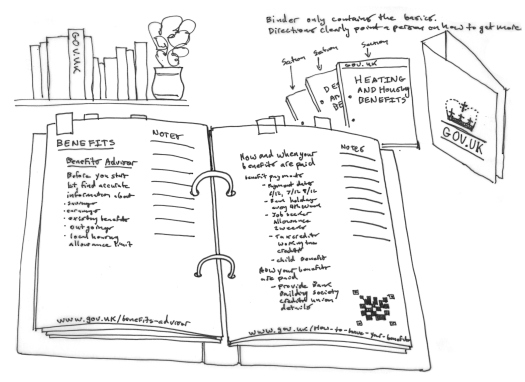 Binder only contains the basics.
Directions clearly point a person on how to get more
GOV.UK
GOV.UK
HEATING
AND Housing
BENEFITS
GOV.UK
BENEFITS
NOTES
Benefits Advisor
Before you start
find accurate
information about
· savings
· earnings
· existing benefits
· outgoings
· local housing
allowance limit
www.gov.uk/benefits-advisor
NOTES
How and when your
benefits are paid
benefit payments
- payment dates
- Bank holiday
- every 4th week
- Job seeker
Allowance
2 weeks
- Tax credits
Working tax
credit
- child Benefit
How your benefits
are paid
- provide Bank
Building society
credit union
details
www.gov.uk/How-to-have-your-benefits